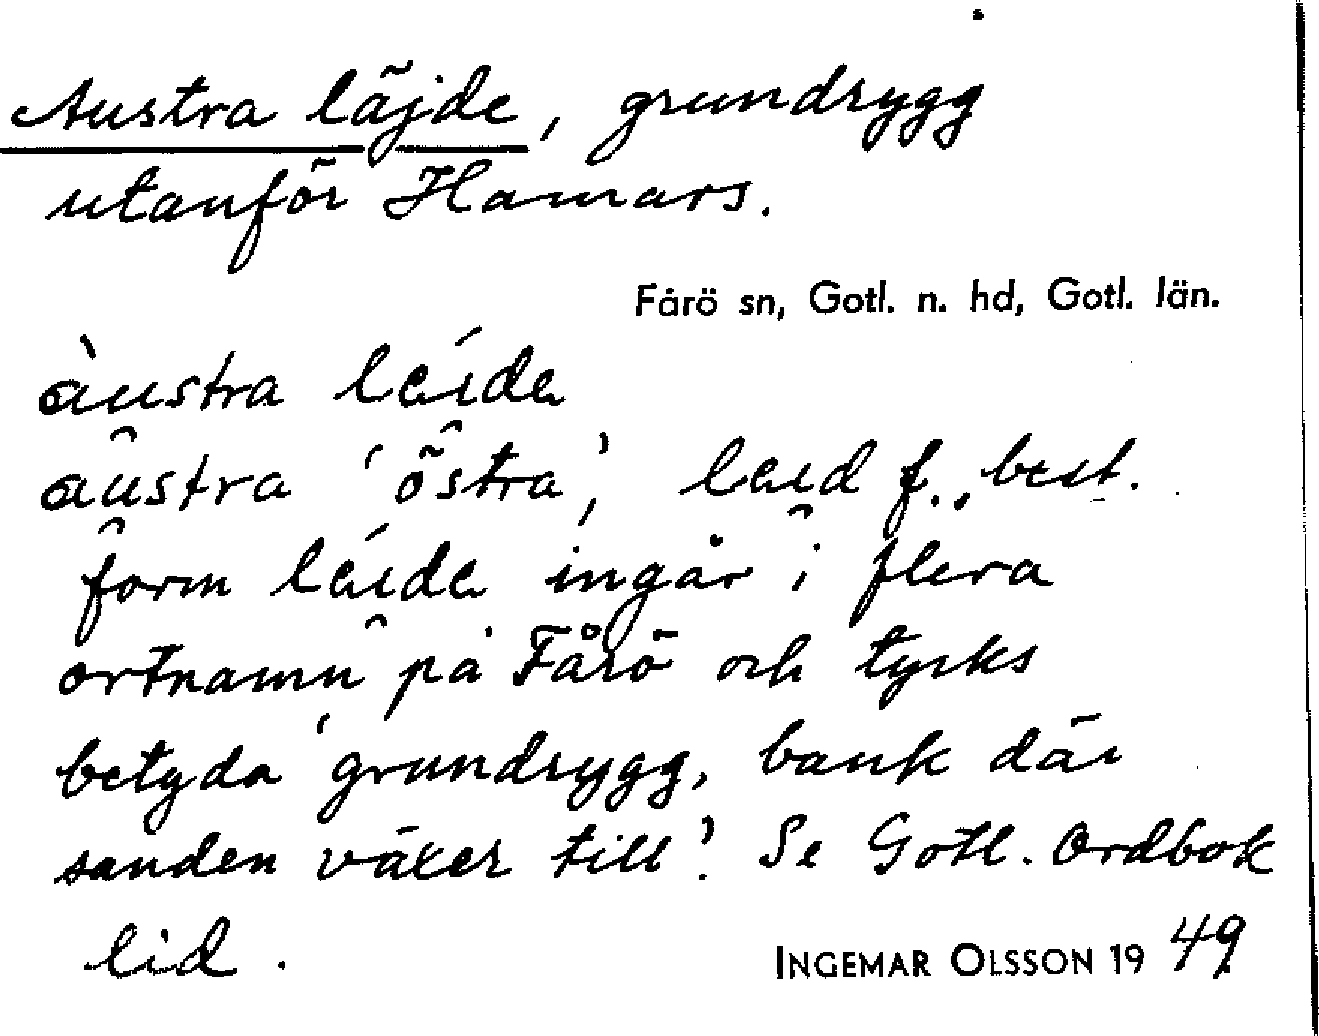 Austra läjde, grundrygg
utanför Hamars.
Fårö sn, Gotl. n. hd, Gotl. län.
àustra léida
austra 'östra', leid f., best.
form léida ingår i flera
ortnamn på Fårö och tycks
betyda 'grundrygg, bank där
sanden växer till'. Se Gotl. Ordbok
lid.
INGEMAR OLSSON 1949